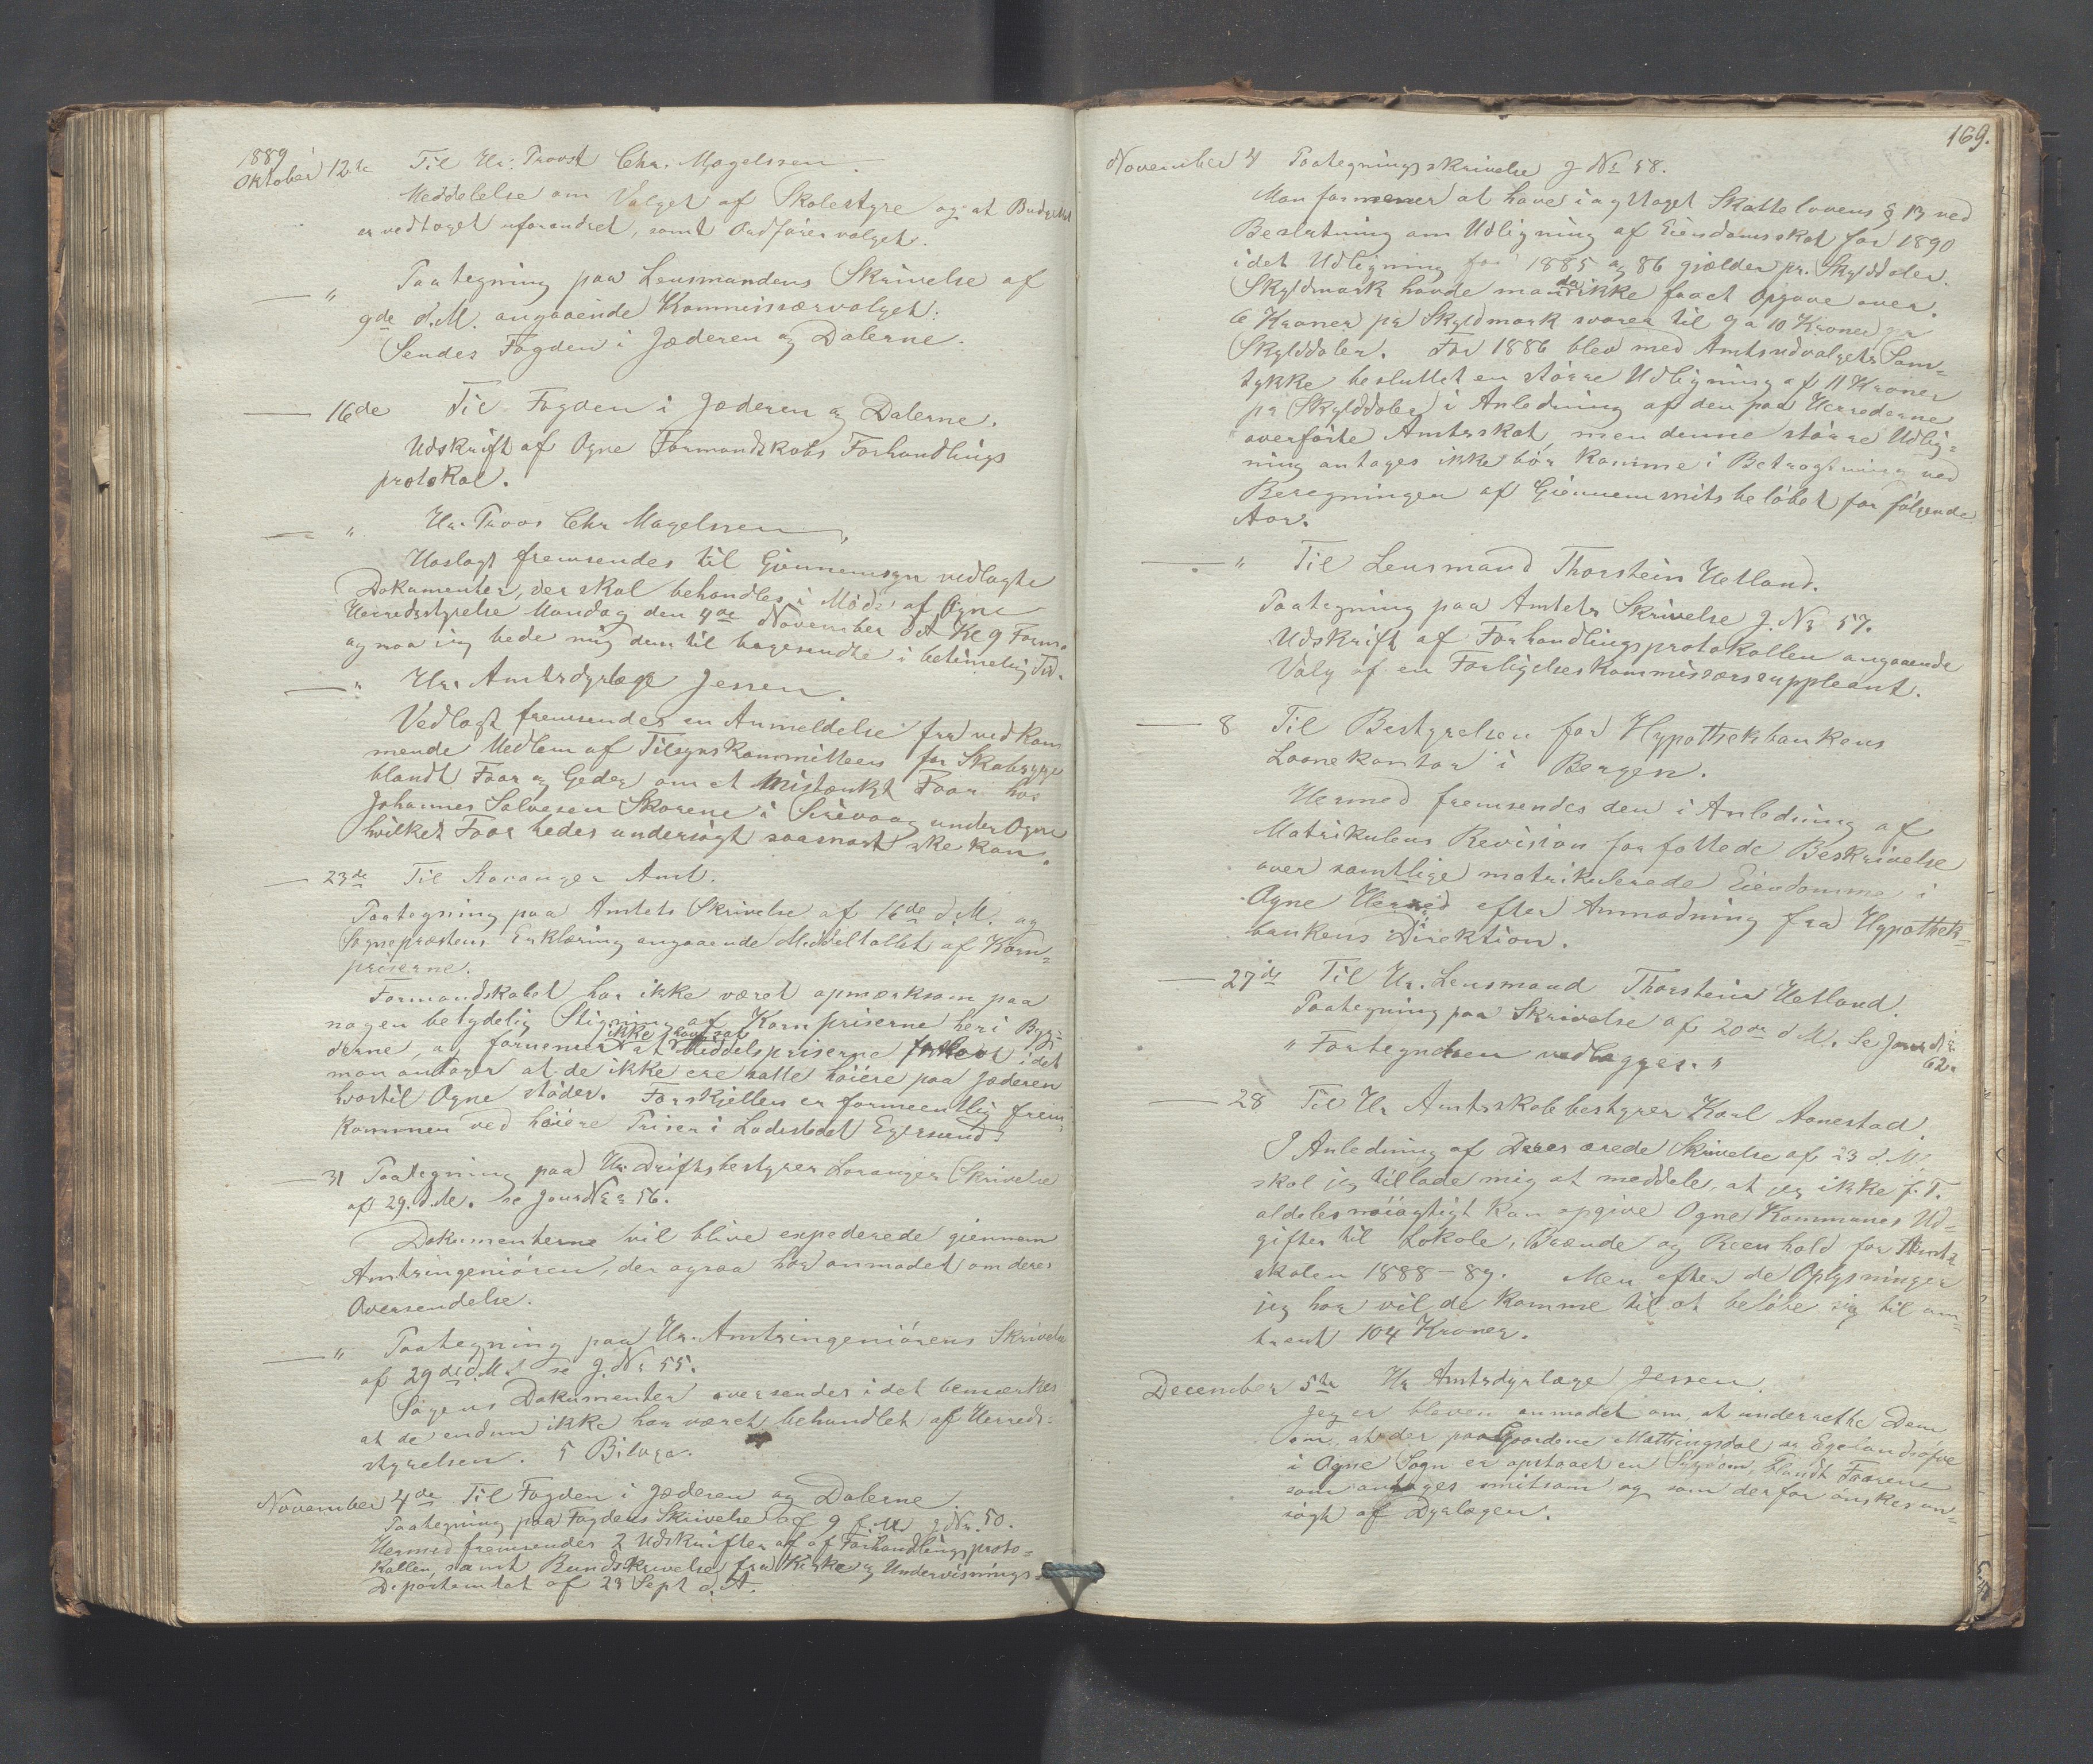 1889
Oktober 12te Til Hr: Provst Chr. Magelssen
Meddelelse om Valget af Skolestyre og at Budgettet
er vedtaget uforandret, samt Ordførervalget.
— " Paategning paa Lensmandens Skrivelse af
9de d.M. angaaende Kommissærvalget:
Sendes Fogden i Jæderen og Dalerne.
— 16de Til Fogden i Jæderen og Dalerne.
Udskrift af Ogne Formandskabs Forhandlings
protokol.
— " Hr. Provs Chr Magelssen,
Hoslagt fremsendes til Giennemsyn vedlagte
Dokumenter, der skal behandles i Møde af Ogne
Herredsstyrelse Mandag den 4de November d A Kl 9 Form.
og maa jeg bede mig dem tilbagesendte i betimelig Tid.
— " Hr. Amtsdyrlæge Jessen.
Vedlagt fremsendes en Anmeldelse fra vedkom
mende Medlem af Tilsynskommitteen for Skabsyge
blandt Faar og Geder om et Mistænkt Faar hos
Johannes Salvesen Skarene i Sirevaag under Ogne
hvilket Faar bedes undersøgt saasnart ske kan.
— 23de Til Stavanger Amt.
Paategning paa Amtets Skrivelse af 16de d.M. og
Sognepræstens Erklæring angaaende Middeltallet af Korn=
priserne.
Formandskabet har ikke været opmærksom paa
nogen betydelig Stigning af Kornpriserne her i Byg=
derne, og formener ikke at Middelspriserne idet
man antager at de ikke ere satte høiere paa Jæderen
hvortil Ogne støder. Forskjellen er formeentlig frem=
kommen ved høiere Priser i Ladestedet Egersund.
— 31 Paategning paa Hr. Driftsbestyrer Loranges Skrivelse
af 29. d.M. se Jour No 56.
Dokumenterne vil blive expederede giennem
Amtsingeniøren, der ogsaa har anmodet om deres
Oversendelse.
— " Paategning paa Hr. Amtsingeniørens Skrivelse
af 29de d.M. se J. No 55.
Sagens Dokumenter oversendes idet bemærkes
at de endnu ikke har været behandlet af Herreds=
styrelsen. 5 Bilage.
November 4de Til Fogden i Jæderen og Dalerne.
Paategning paa Fogdens Skrivelse af 9 f.M. J. No. 50.
Hermed fremsendes 2 Udskrifter af af Forhandlingsproto=
kollen, samt Rundskrivelse fra Kirke og Undervisnings=
Departemtet af 23 Sept d. A.
169.
November 4 Paategningsskrivelse J No 58.
Man formener at have iagttaget Skattelovens § 13 ved
Beslutning om Udligning af Eiendomsskat for 1890
idet Udligning for 1885 og 86 gjælder pr. Skylddaler.
Skyldmark havde man da ikke faaet Opgave over.
6 Kroner pr Skyldmark svarer til 9 a 10 Kroner pr
Skylddaler. For 1886 blev med Amtsudvalgets Sam=
tykke besluttet en større Udligning af 11 Kroner
pr Skylddaler i Anledning af den paa Herrederne
overførte Amtsskat, men denne større Udlig=
ning antages ikke bør komme i Betragtning ved
Beregningen af Giennemsnitsbeløbet for følgende
Aar.
— " Til Lensmand Thorstein Hetland.
Paategning paa Amtets Skrivelse J. No 57.
Udskrift af Forhandlingsprotokollen angaaende
Valg af en Forligelseskommissærsuppleant.
— 8 Til Bestyrelsen for Hypothekbankens
Laanekontor i Bergen.
Hermed fremsendes den i Anledning af
Matrikulens Revision forfattede Beskrivelse
over samtlige matrikulerede Eiendomme i
Ogne Herred efter Anmodning fra Hypothek=
bankens Direktion.
— 27de Til Hr. Lensmand Thorstein Hetland.
Paategning paa Skrivelse af 20de d M. Se Jour No
62.
" Fortegnelsen vedlægges. "
— 28 Til Hr Amtsskolebestyrer Karl Aanestad.
I Anledning af Deres ærede Skrivelse af 23 d.M.
skal jeg tillade mig at meddele, at jeg ikke f. T.
aldeles nøiagtigt kan opgive Ogne Kommunes Ud=
gifter til Lokale, Brænde og Reenhold for Amts
skolen 1888-89. Men efter de Oplysninger
jeg har vil de komme til at beløbe sig til om=
trent 104 Kroner.
December 5te Hr Amtsdyrlæge Jessen.
Jeg er bleven anmodet om, at underrette Dem
om, at der paa Gaardene Mattingsdal og Egelandsøfve
i Ogne Sogn er opstaaet en Sygdom, blandt Faarene
som antages smitsom og som derfor ønskes un=
søgt af Dyrlægen.